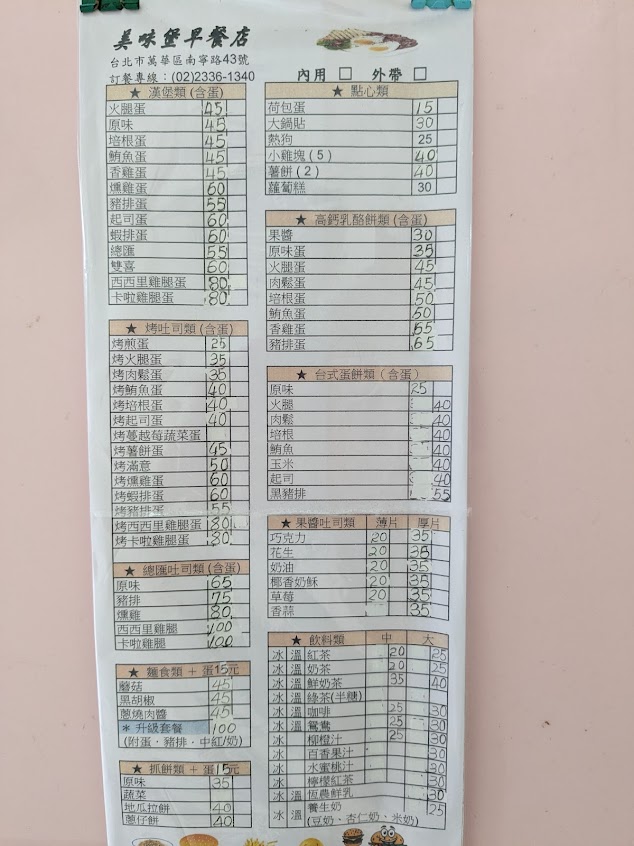 美味堡早餐店
台北市萬華區南寧路43號
訂餐專線：(02)2336-1340
內用 □ 外帶 □
★ 漢堡類 (含蛋)
火腿蛋 45
原味 45
培根蛋 45
鮪魚蛋 45
香雞蛋 45
燻雞蛋 60
豬排蛋 55
起司蛋 60
蝦排蛋 60
總匯 55
雙喜 60
西西里雞腿蛋 80
卡啦雞腿蛋 80
★ 烤吐司類 (含蛋)
烤煎蛋 25
烤火腿蛋 35
烤肉鬆蛋 35
烤鮪魚蛋 40
烤培根蛋 40
烤起司蛋 40
烤蔓越莓蔬菜蛋
烤薯餅蛋 45
烤滿意 50
烤燻雞蛋 60
烤蝦排蛋 60
烤豬排蛋 55
烤西西里雞腿蛋 80
烤卡啦雞腿蛋 80
★ 總匯吐司類 (含蛋)
原味 65
豬排 75
燻雞 80
西西里雞腿 100
卡啦雞腿 100
★ 麵食類 + 蛋15元
蘑菇 45
黑胡椒 45
蔥燒肉醬 45
* 升級套餐 100
(附蛋．豬排．中紅/奶)
★ 抓餅類 + 蛋15元
原味 35
蔬菜
地瓜拉餅 40
蔥仔餅 40
★ 點心類
荷包蛋 15
大鍋貼 30
熱狗 25
小雞塊 ( 5 ) 40
薯餅 ( 2 ) 40
蘿蔔糕 30
★ 高鈣乳酪餅類 (含蛋)
果醬 30
原味蛋 35
火腿蛋 45
肉鬆蛋 45
培根蛋 50
鮪魚蛋 50
香雞蛋 65
豬排蛋 65
★ 台式蛋餅類 (含蛋)
原味 25
火腿 40
肉鬆 40
培根 40
鮪魚 40
玉米 40
起司 40
黑豬排 55
★ 果醬吐司類 薄片 厚片
巧克力 20 35
花生 20 35
奶油 20 35
椰香奶酥 20 35
草莓 20 35
香蒜 35
★ 飲料類 中 大
冰 溫 紅茶 20 25
冰 溫 奶茶 20 25
冰 溫 鮮奶茶 35 40
冰 溫 綠茶(半糖)
冰 溫 咖啡 25 30
冰 溫 鴛鴦 25 30
冰 柳橙汁 25 30
冰 百香果汁 30
冰 水蜜桃汁 30
冰 檸檬紅茶 30
冰 溫 恆農鮮乳 30
冰 溫 養生奶 25
(豆奶、杏仁奶、米奶)